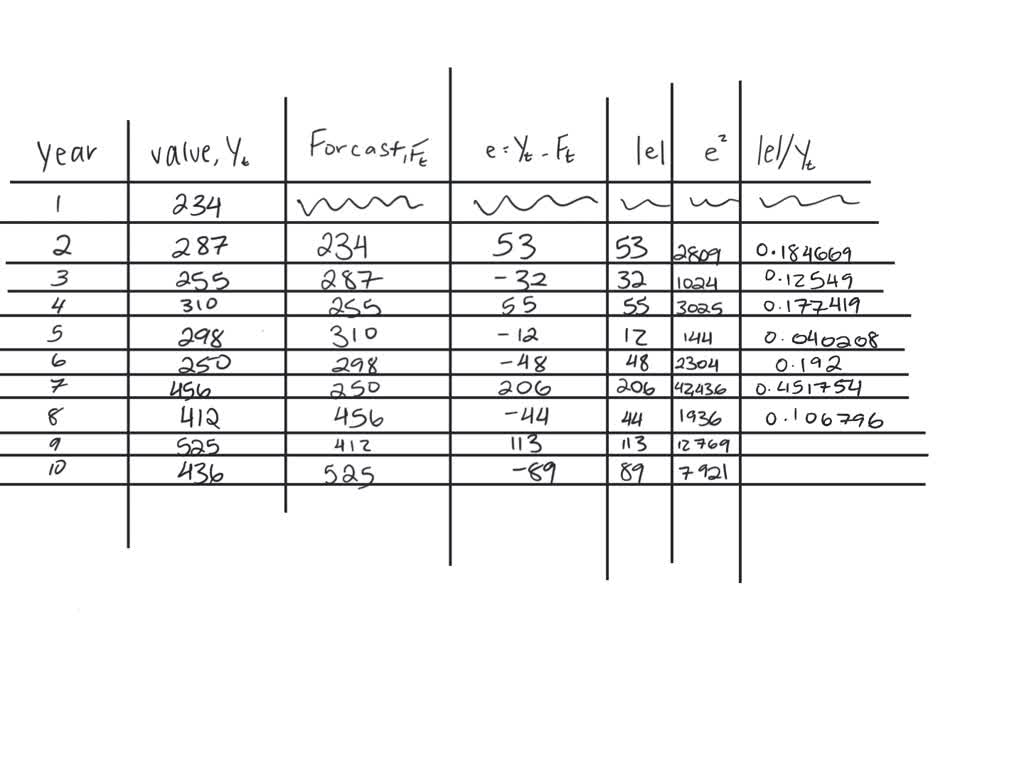 year value, Yt Forcast, Ft e = Yt - Ft |e| e² |e|/Yt
1 234
2 287 234 53 53 2809 0.184669
3 255 287 -32 32 1024 0.12549
4 310 255 55 55 3025 0.177419
5 298 310 -12 12 144 0.040208
6 250 298 -48 48 2304 0.192
7 456 250 206 206 42,436 0.451754
8 412 456 -44 44 1936 0.106796
9 525 412 113 113 12769
10 436 525 -89 89 7921